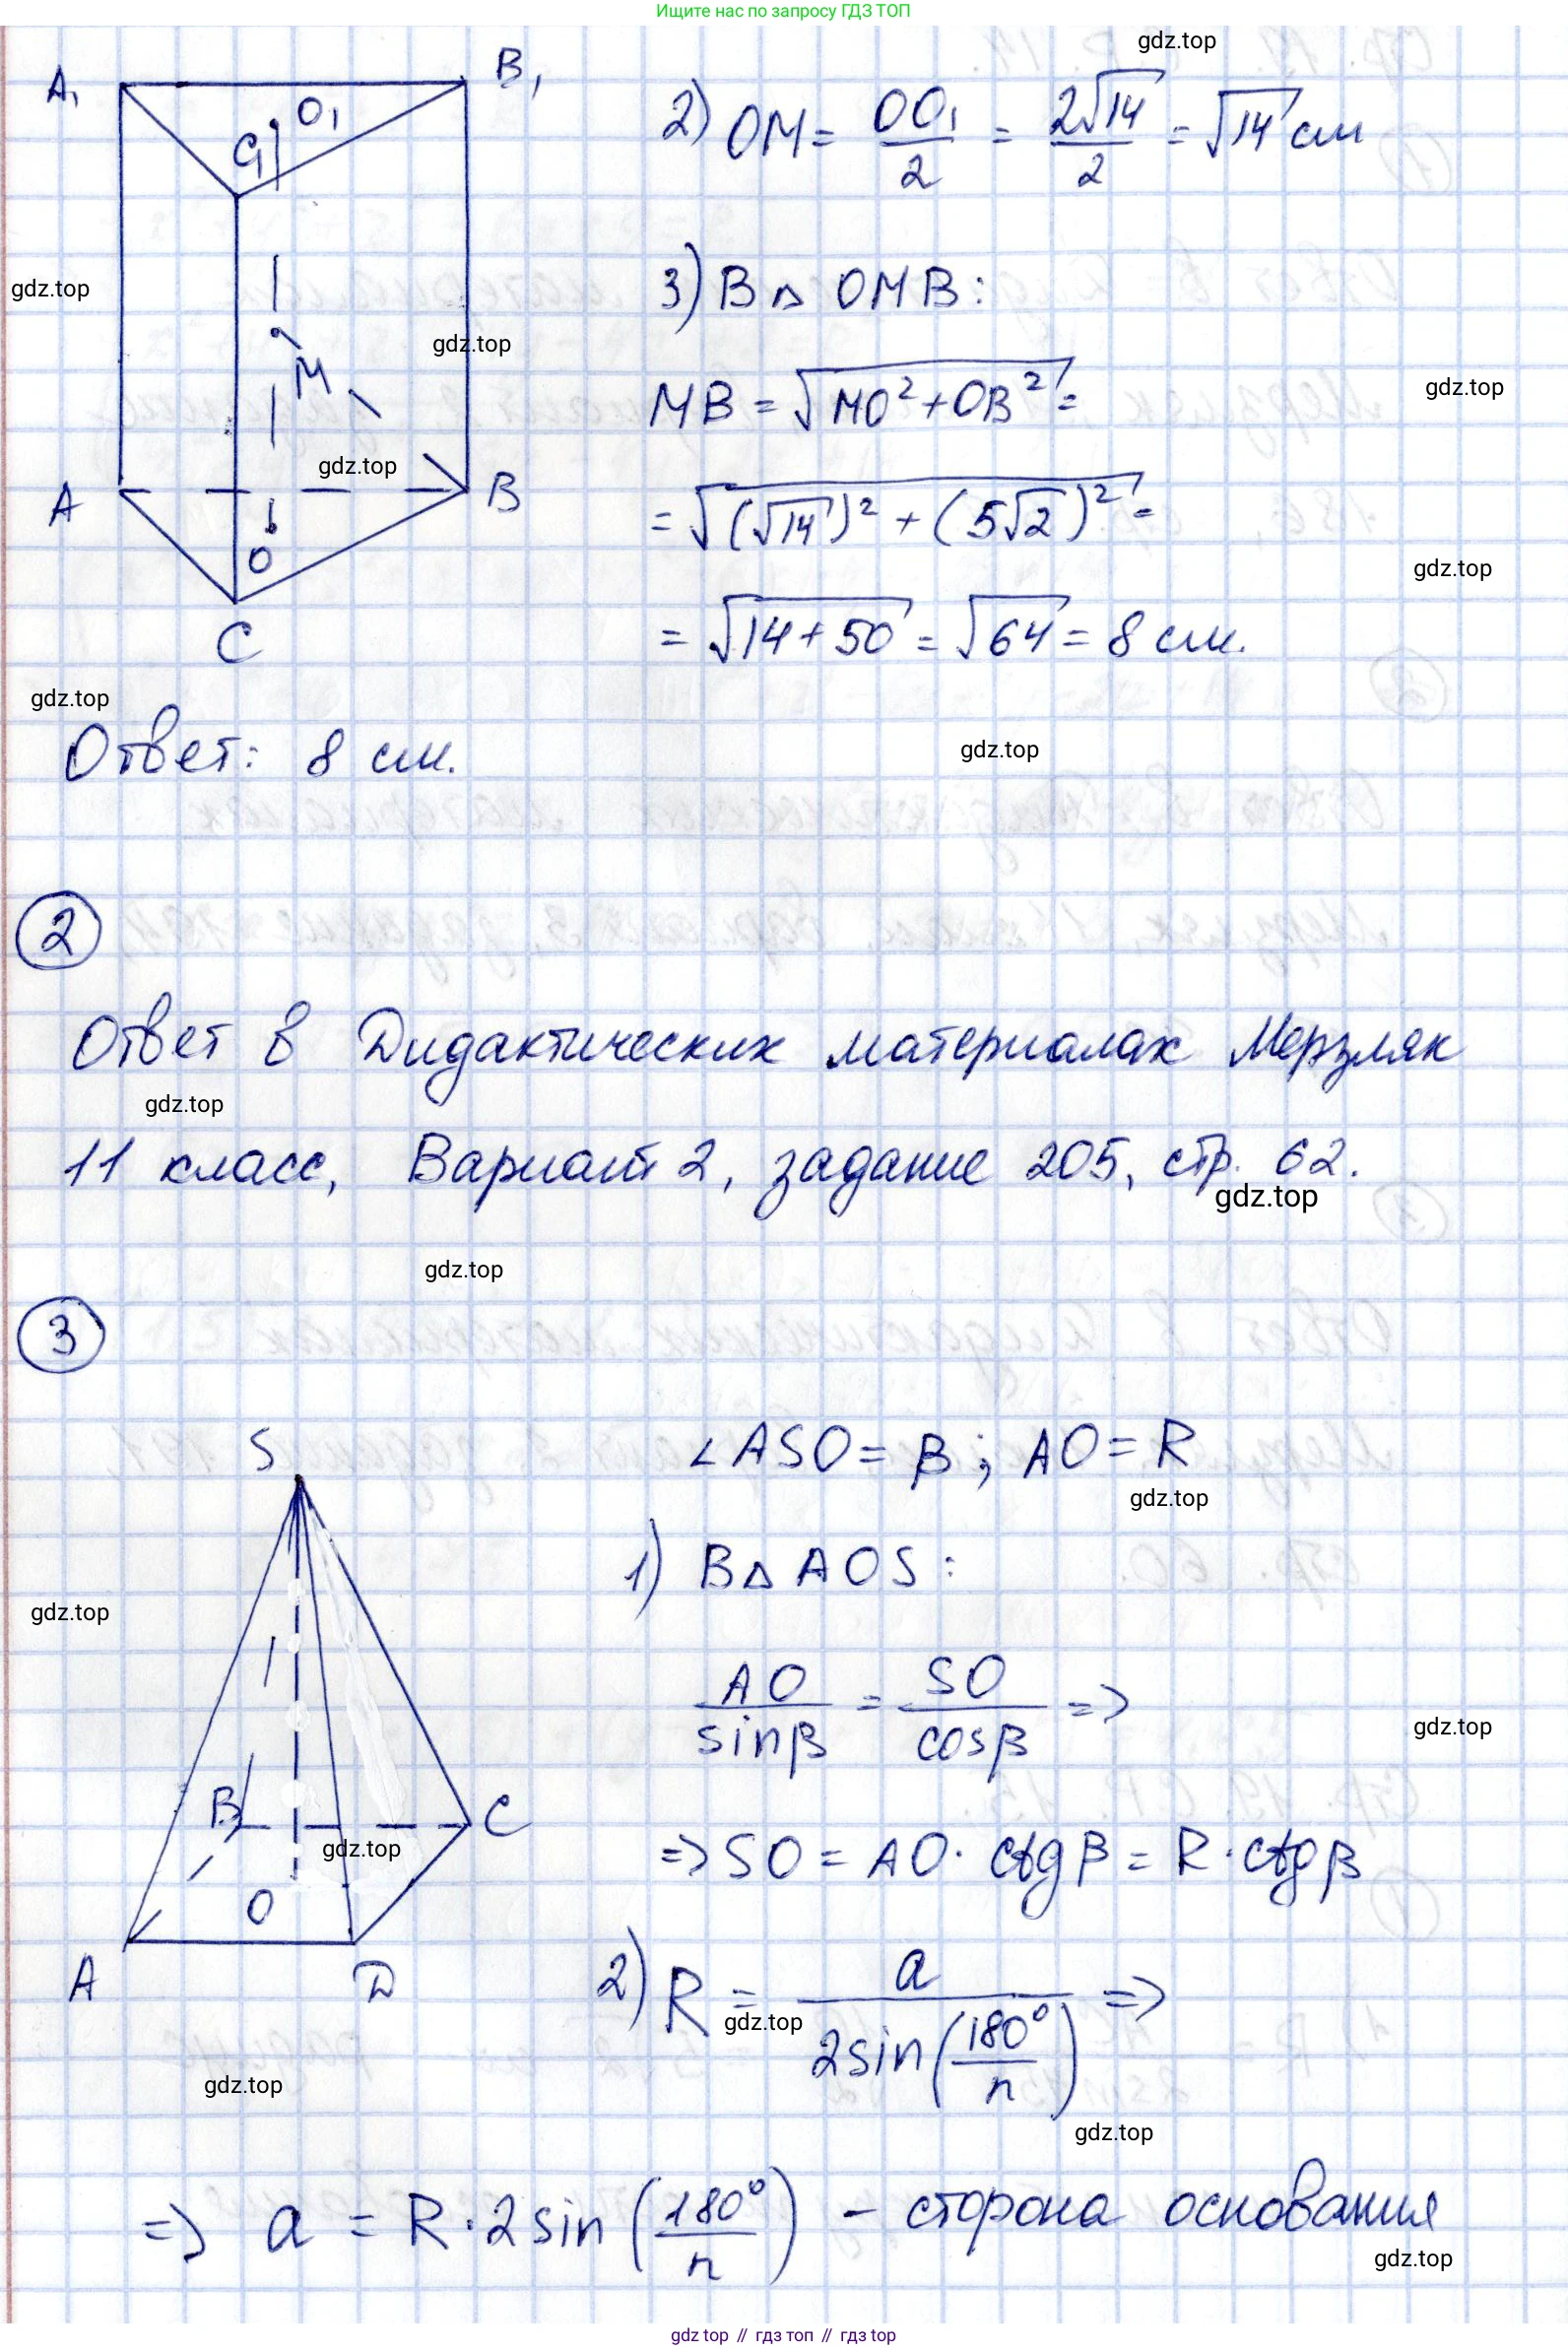 Ищите нас по запросу ГДЗ ТОП
gdz.top
A₁ B₁
O₁
C₁
2) OM = OO₁/2 = 2√14/2 = √14 см
gdz.top
3) В △ OMB:
gdz.top
M
MB = √(MO² + OB²) =
gdz.top
gdz.top
A B
= √((√14)² + (5√2)²) =
O
gdz.top
C
= √(14 + 50) = √64 = 8 см.
gdz.top
Ответ: 8 см.
gdz.top
2
Ответ в Дидактических материалах Мерзляк
gdz.top
11 класс, Вариант 2, задание 205, стр. 62.
gdz.top
gdz.top
3
S
∠ASO = β; AO = R
gdz.top
1) В △ AOS:
gdz.top
AO/sinβ = SO/cosβ =>
gdz.top
B C
gdz.top
=> SO = AO · ctgβ = R · ctgβ
O
A D
2) R = a/(2sin(180°/n)) =>
gdz.top
gdz.top
gdz.top
=> a = R · 2sin(180°/n) – сторона основания
gdz.top
gdz top // гдз топ // гдз top